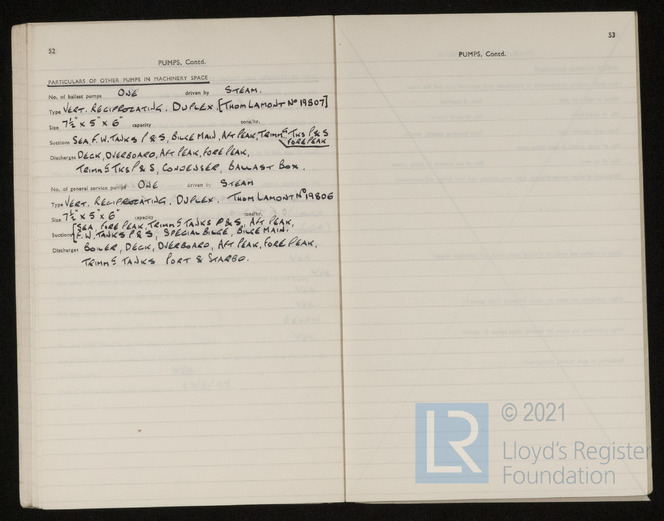 52
PUMPS, Contd.
PARTICULARS OF OTHER PUMPS IN MACHINERY SPACE
No. of ballast pumps ONE driven by STEAM.
Type VERT. RECIPROCATING. DUPLEX. [THOM LAMONT Nº 19807]
Size 7½" x 5" x 6" capacity tons/hr.
Suctions SEA, F.W. TANKS P & S, BILGE MAIN, AFT PEAK, TRIMMG TKS P & S
FORE PEAK
Discharges DECK, OVERBOARD, AFT PEAK, FORE PEAK,
TRIMMG TKS P & S, CONDENSER, BALLAST BOX.
No. of general service pumps ONE driven by STEAM
Type VERT. RECIPROCATING. DUPLEX. THOM LAMONT Nº 19806
Size 7½" x 5" x 6" capacity tons/hr.
[SEA, FORE PEAK, TRIMMG TANKS P & S, AFT PEAK,
Suctions F.W. TANKS P & S, SPECIAL BILGE, BILGE MAIN.
Discharges BOILER, DECK, OVERBOARD, AFT PEAK, FORE PEAK,
TRIMMG TANKS PORT & STARBD.
53
PUMPS, Contd.
LR
© 2021
Lloyd's Register
Foundation